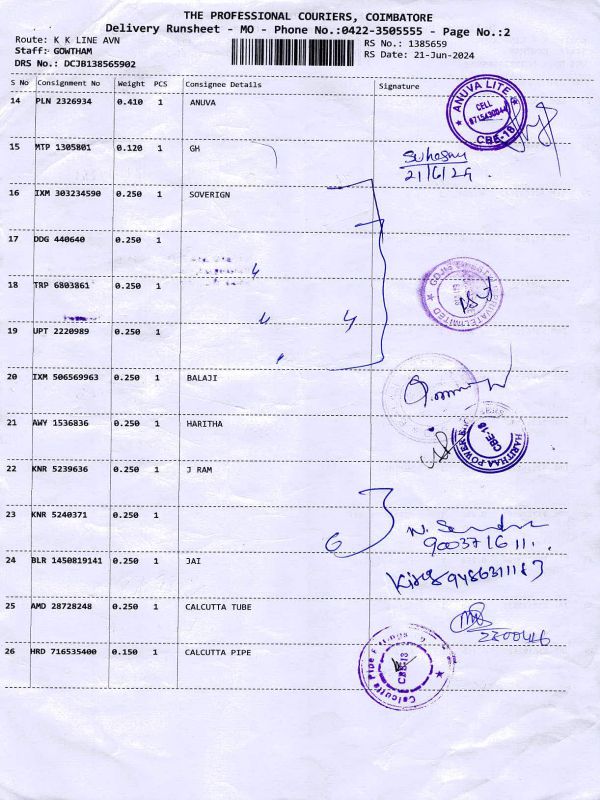 THE PROFESSIONAL COURIERS, COIMBATORE
Delivery Runsheet - MO - Phone No.:0422-3505555 - Page No.:2
Route: K K LINE AVN
Staff: GOWTHAM
DRS No.: DCJB138565902
RS No.: 1385659
RS Date: 21-Jun-2024
S No Consignment No Weight PCS Consignee Details Signature
14 PLN 2326934 0.410 1 ANUVA
ANUVA LITE
CELL
CBE-18
15 MTP 1305801 0.120 1 GH
21/6/24
16 IXM 303234590 0.250 1 SOVERIGN
17 DDG 440640 0.250 1
18 TRP 6803861 0.250 1
PRIVATE LIMITED
19 UPT 2220989 0.250 1
20 IXM 506569963 0.250 1 BALAJI
21 AWY 1536836 0.250 1 HARITHA
CBE-18
22 KNR 5239636 0.250 1 J RAM
23 KNR 5240371 0.250 1
9003716111.
24 BLR 1450819141 0.250 1 JAI
9486311183
25 AMD 28728248 0.250 1 CALCUTTA TUBE
26 HRD 716535400 0.150 1 CALCUTTA PIPE
Calcutta Pipe Fittings